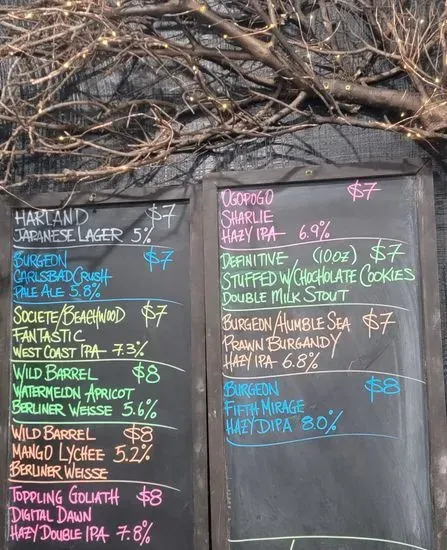 HARLAND $7
JAPANESE LAGER 5%
BURGEON $7
CARLSBAD CRUSH
PALE ALE 5.8%
SOCIETE/BEACHWOOD $7
FANTASTIC
WEST COAST IPA 7.3%
WILD BARREL $8
WATERMELON APRICOT
BERLINER WEISSE 5.6%
WILD BARREL $8
MANGO LYCHEE 5.2%
BERLINER WEISSE
TOPPLING GOLIATH $8
DIGITAL DAWN
HAZY DOUBLE IPA 7.8%
OGOPOGO $7
SHARLIE
HAZY IPA 6.9%
DEFINITIVE (10oz) $7
STUFFED W/CHOCHOLATE COOKIES
DOUBLE MILK STOUT
BURGEON/HUMBLE SEA $7
PRAWN BURGANDY
HAZY IPA 6.8%
BURGEON $8
FIFTH MIRAGE
HAZY DIPA 8.0%